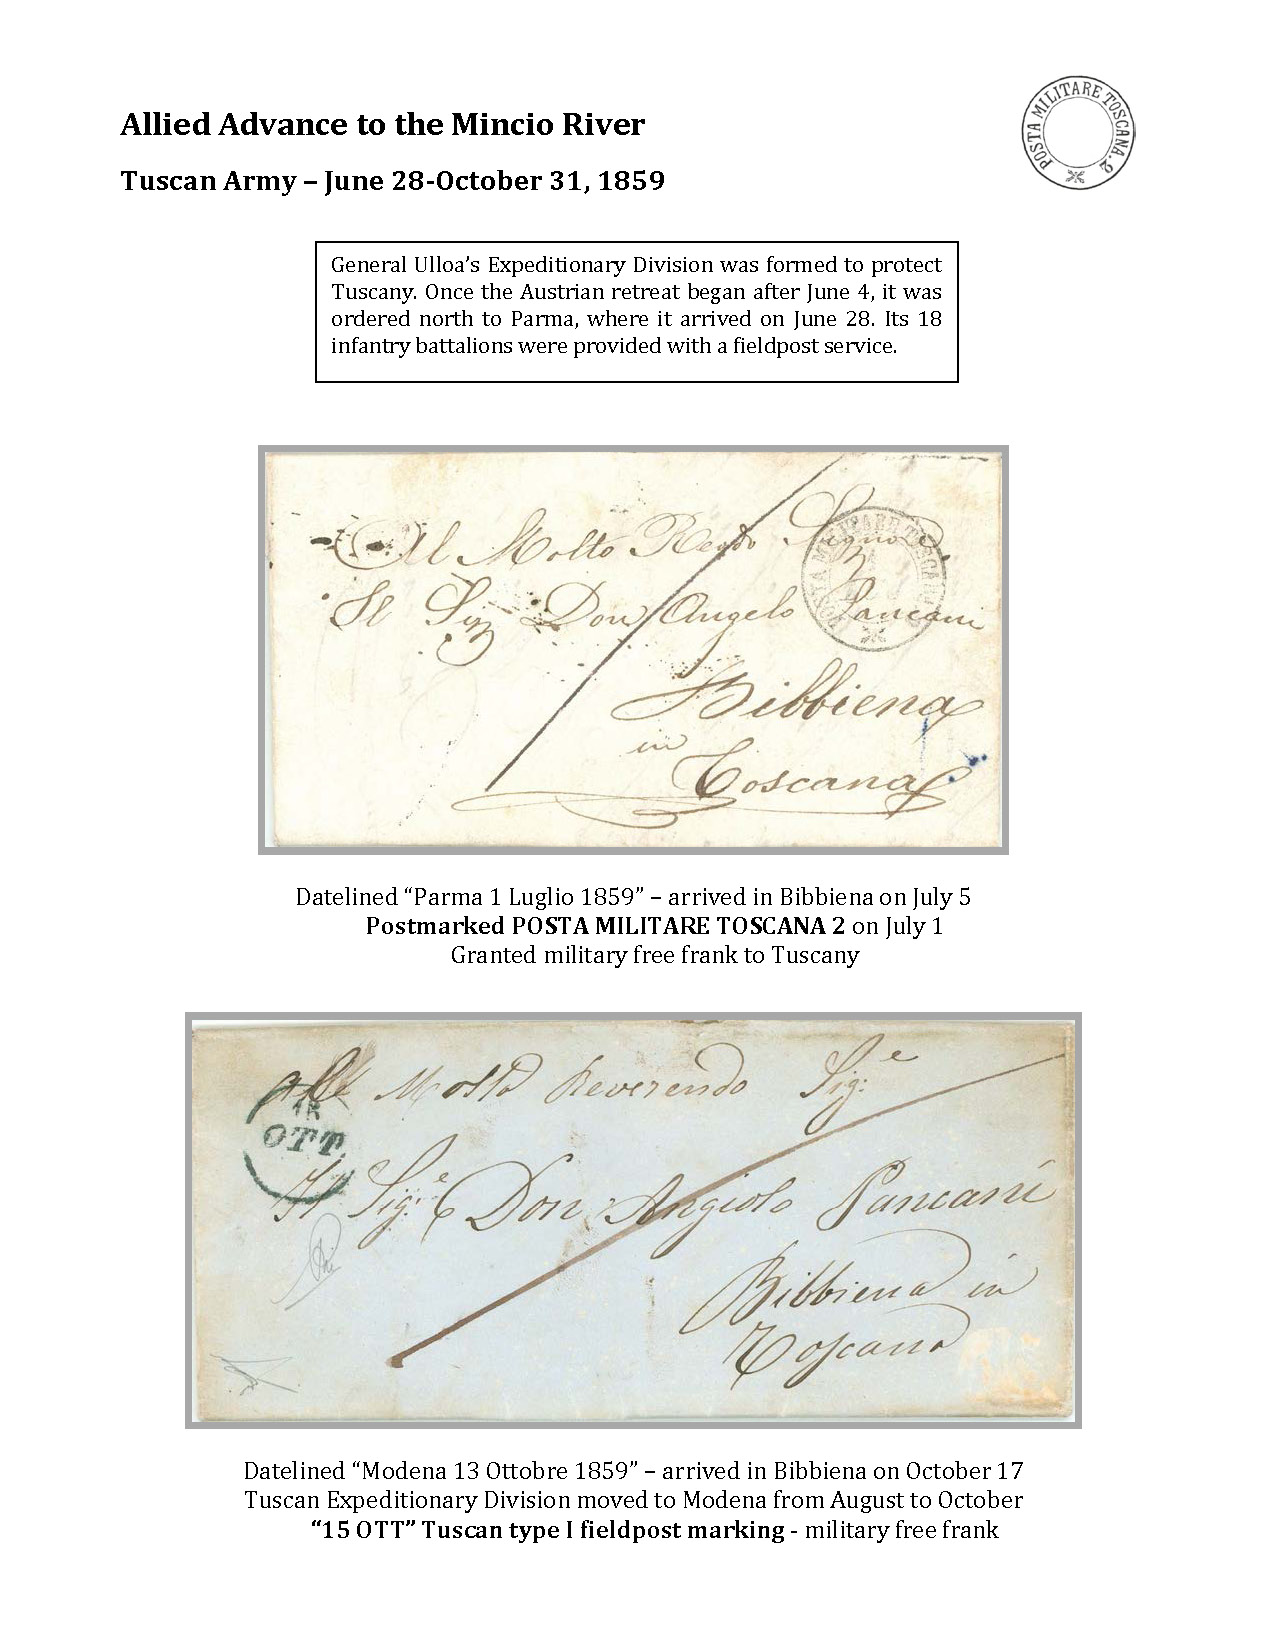 Allied Advance to the Mincio River
POSTA MILITARE TOSCANA. 2.
Tuscan Army – June 28-October 31, 1859
General Ulloa’s Expeditionary Division was formed to protect
Tuscany. Once the Austrian retreat began after June 4, it was
ordered north to Parma, where it arrived on June 28. Its 18
infantry battalions were provided with a fieldpost service.
Al Molto Revdo Signore
POSTA MILITARE TOSCANA
Il Sig Don Angelo Pancani
Bibbiena
in
Toscana
Datelined “Parma 1 Luglio 1859” – arrived in Bibbiena on July 5
Postmarked POSTA MILITARE TOSCANA 2 on July 1
Granted military free frank to Tuscany
Molto Reverendo Sig:e
15
OTT
Il Sig:e Don Angiolo Pancani
Bibbiena in
Toscana
Datelined “Modena 13 Ottobre 1859” – arrived in Bibbiena on October 17
Tuscan Expeditionary Division moved to Modena from August to October
“15 OTT” Tuscan type I fieldpost marking - military free frank